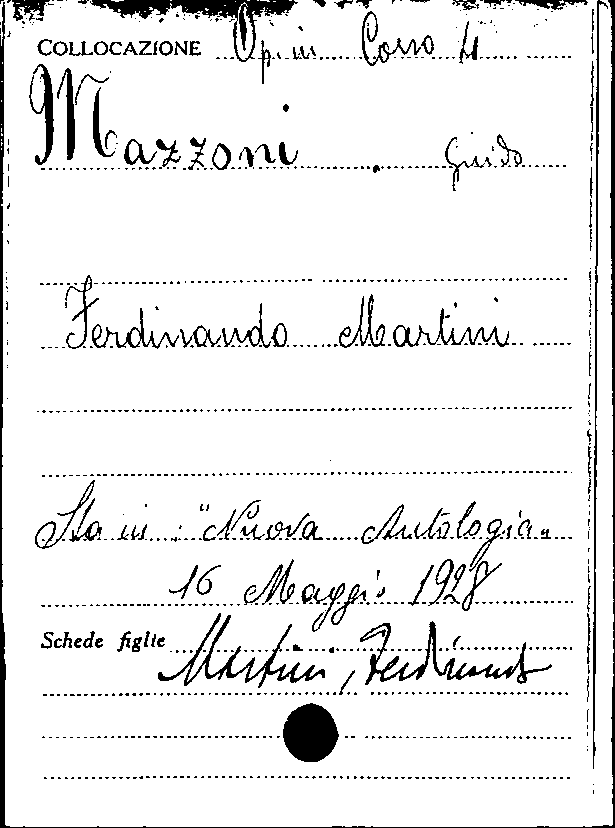 COLLOCAZIONE Op. in Corso 4
Mazzoni . Guido
Ferdinando Martini
Sta in : "Nuova Antologia"
16 Maggio 1928
Schede figlie Martini, Ferdinando